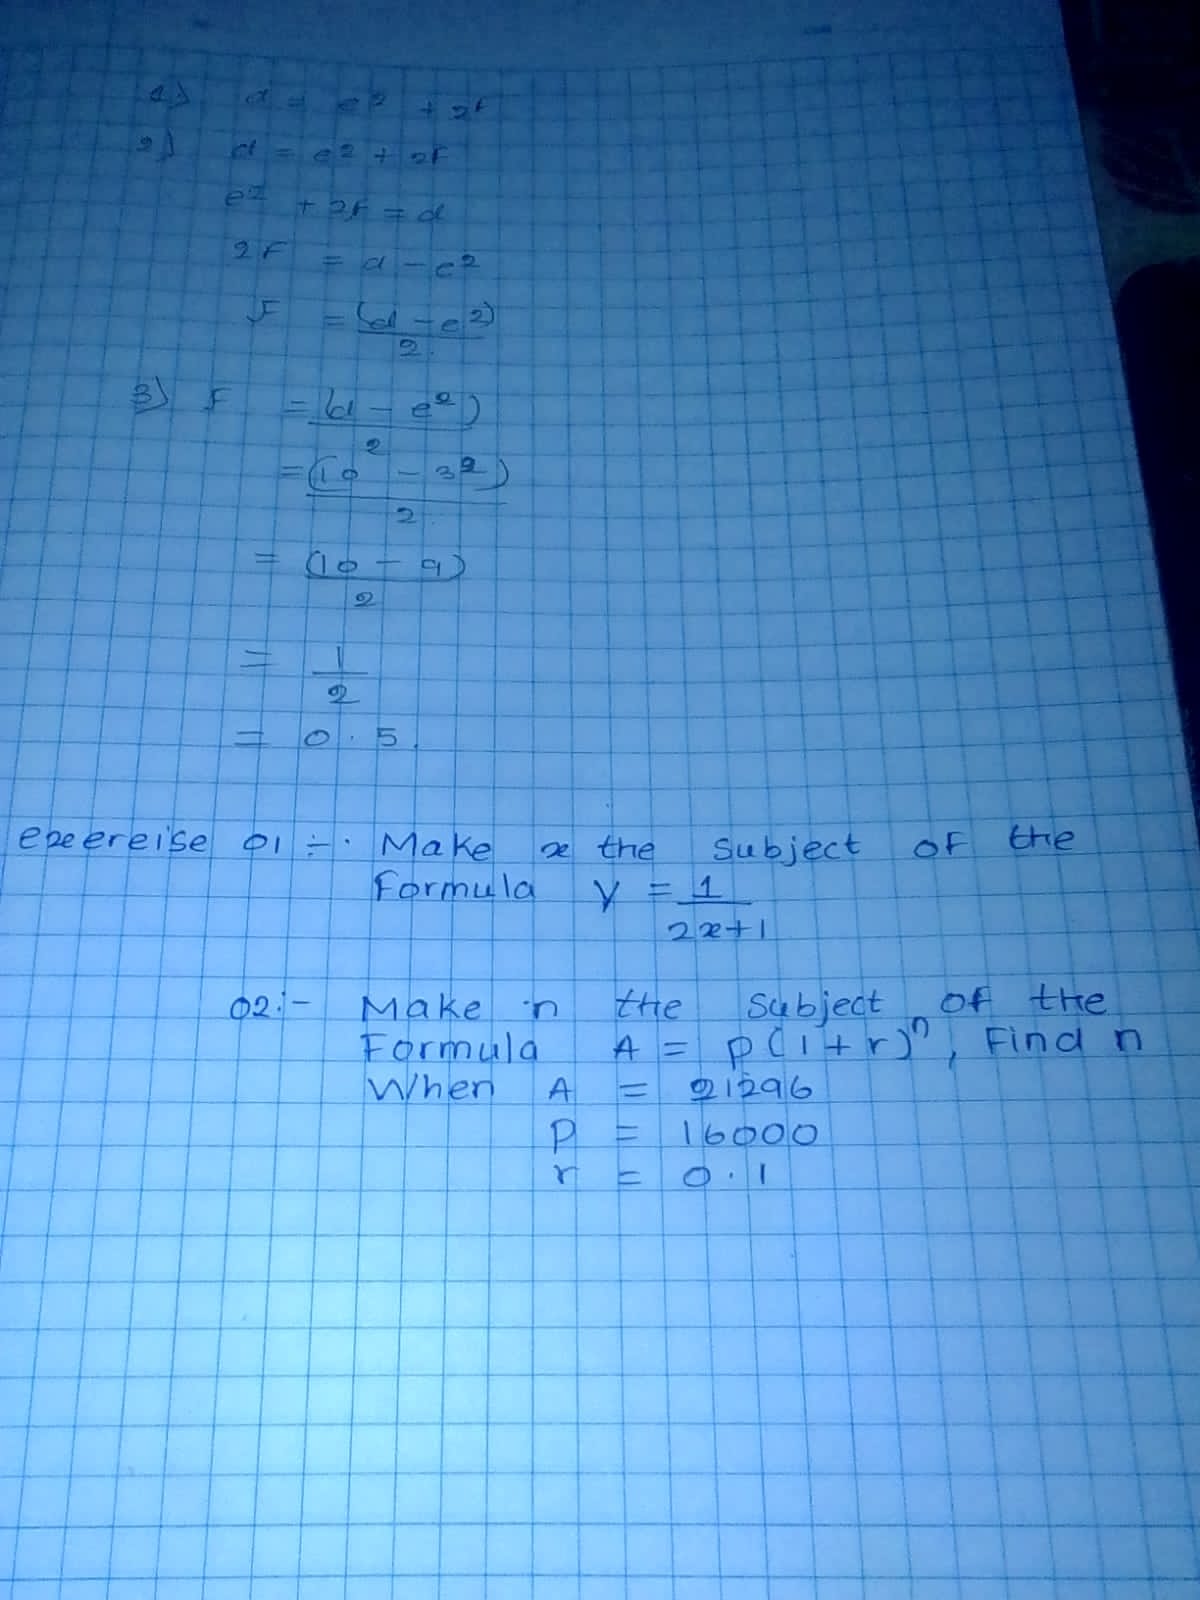 1) d = e² + 2f
2) d = e² + 2f
e² + 2f = d
2f = d - e²
f = (d - e²)
2
3) f = (d - e²)
2
= (10 - 3²)
2
= (10 - 9)
2
= 1
2
= 0.5
exeereise 01 ÷. Make x the subject of the
Formula y = 1
2x+1
02:- Make n the subject of the
Formula A = p(1+r)ⁿ, Find n
When A = 21296
p = 16000
r = 0.1